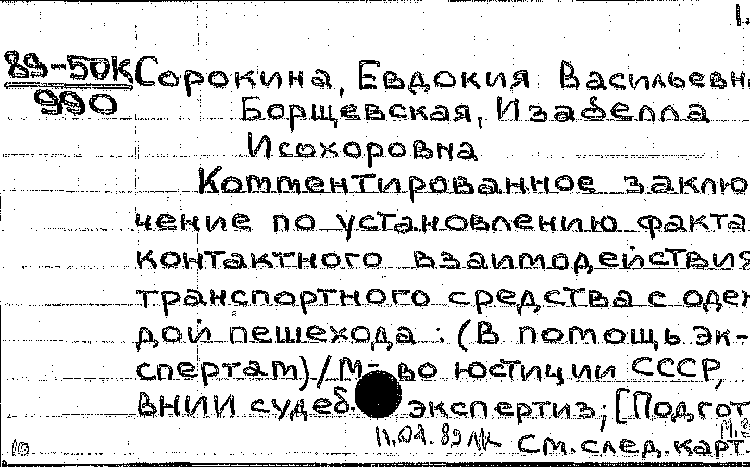 1.
89-50К Сорокина, Евдокия Васильевн
990 Борщевская, Изабелла
Исохоровна
Комментированное заклю
чение по установлению факта
контактного взаимодействия
транспортного средства с одеж
дой пешехода : (В помощь эк-
спертам) / М- во юстиции СССР,
ВНИИ судеб. экспертиз; [Подгот
11.04.89 см. след. карт
10